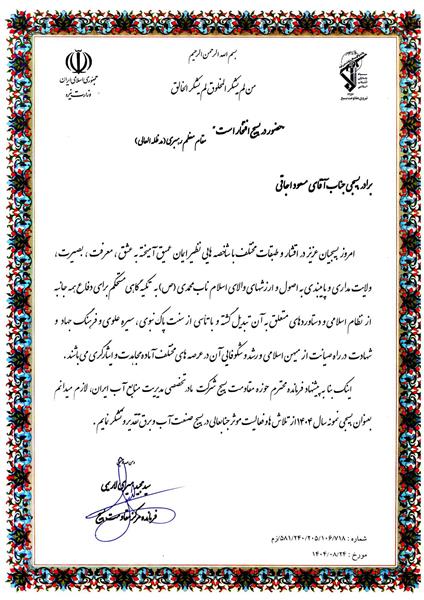 بسم الله الرحمن الرحیم
من لم یشکر المخلوق لم یشکر الخالق
جمهوری اسلامی ایران
وزارت نیرو
"حضور در بسیج افتخار است"
مقام معظم رهبری (مدظله العالی)
برادر بسیجی جناب آقای مسعود اجاقی
امروز بسیجیان عزیز در اقشار و طبقات مختلف با شاخصه هایی نظیر ایمان عمیق آمیخته به عشق، معرفت، بصیرت،
ولایت مداری و پایبندی به اصول و ارزشهای والای اسلام ناب محمدی (ص) به تکیه گاهی مستحکم برای دفاع همه جانبه
از نظام اسلامی و دستاوردهای متعلق به آن تبدیل گشته و با تاسی از سنت پاک نبوی، سیره علوی و فرهنگ جهاد و
شهادت در راه صیانت از میهن اسلامی و رشد و شکوفایی آن در عرصه های مختلف آماده مجاهدت و ایثارگری می باشند.
اینک بنا به پیشنهاد فرمانده محترم حوزه مقاومت بسیج شرکت مادر تخصصی مدیریت منابع آب ایران، لازم میدانم
بعنوان بسیجی نمونه سال ۱۴۰۴ از تلاش ها و فعالیت موثر جنابعالی در بسیج صنعت آب و برق تقدیر و تشکر نمایم.
سید مجید میرزی لاریمی
فرمانده مرکز مقاومت بسیج
شماره : ۵۸۱/۲۴۰/۲۰۵/۱۰۶/۷۱۸/زم
مورخ : ۱۴۰۴/۰۸/۲۴